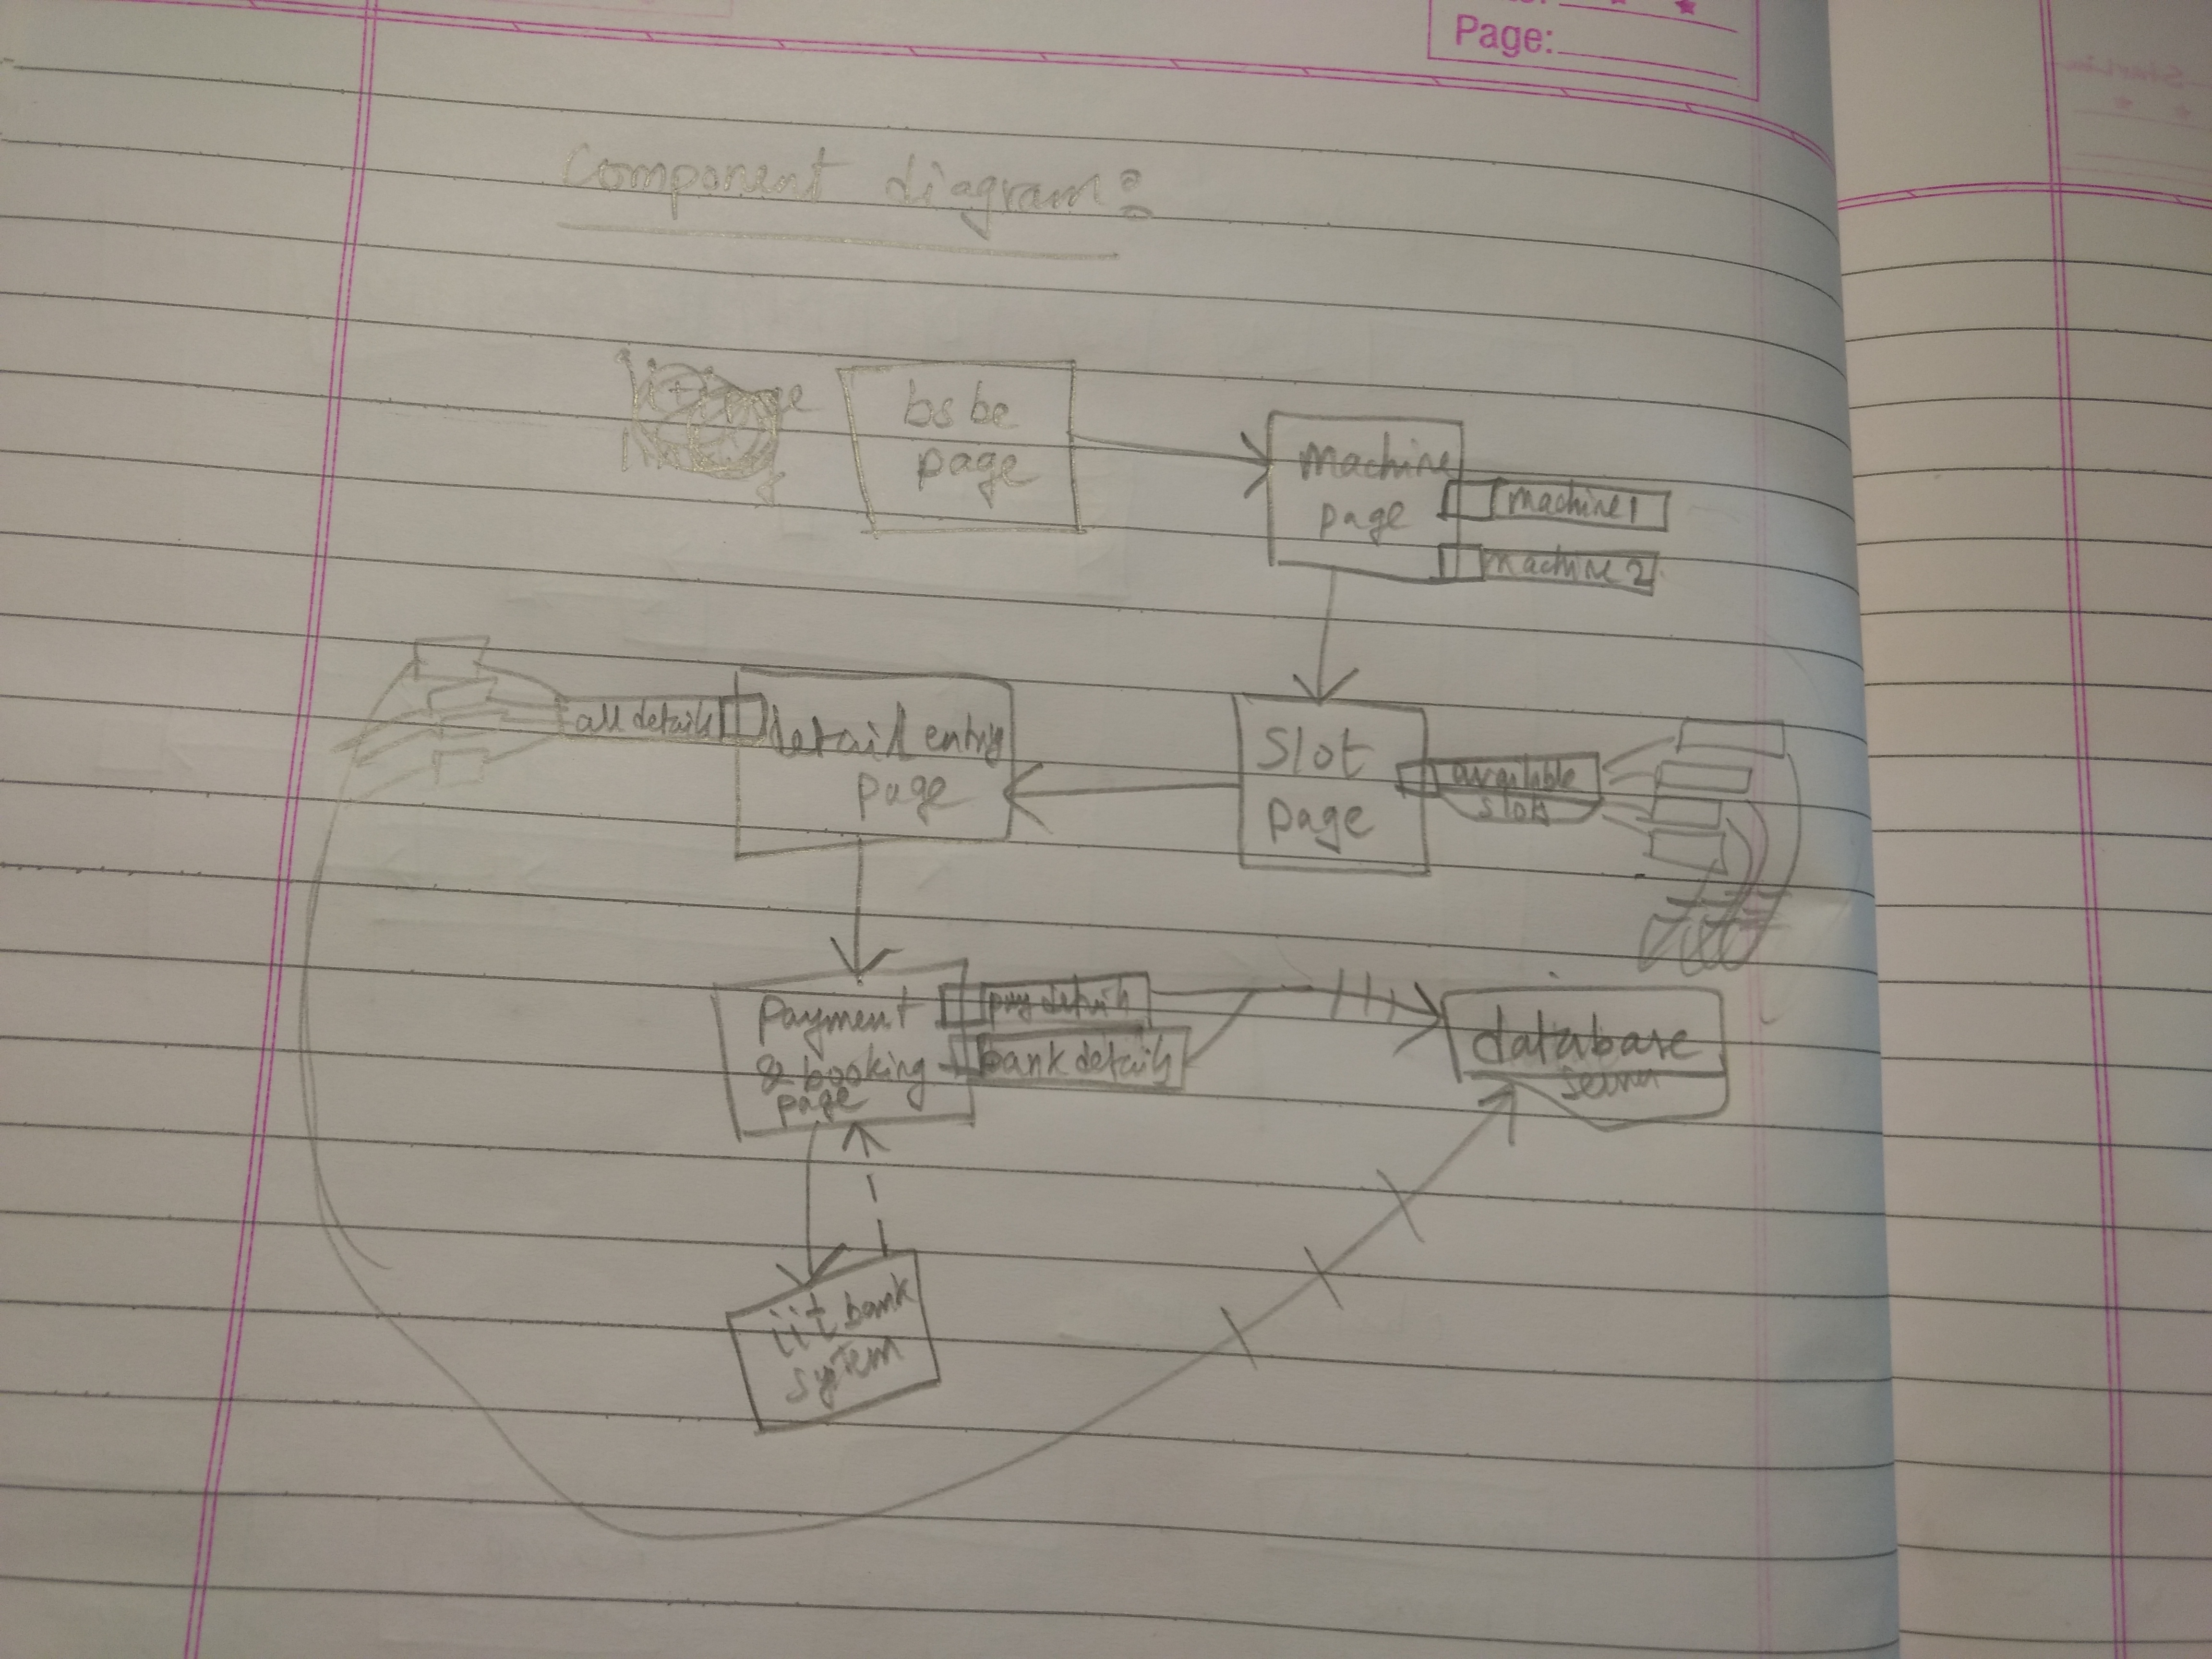 Page:
Component diagram:
bsbe
page
Machine
page
Machine 1
Machine 2
all details
detail entry
page
Slot
page
available
slots
Payment
& booking
page
pay details
bank details
database
server
iit bank
system